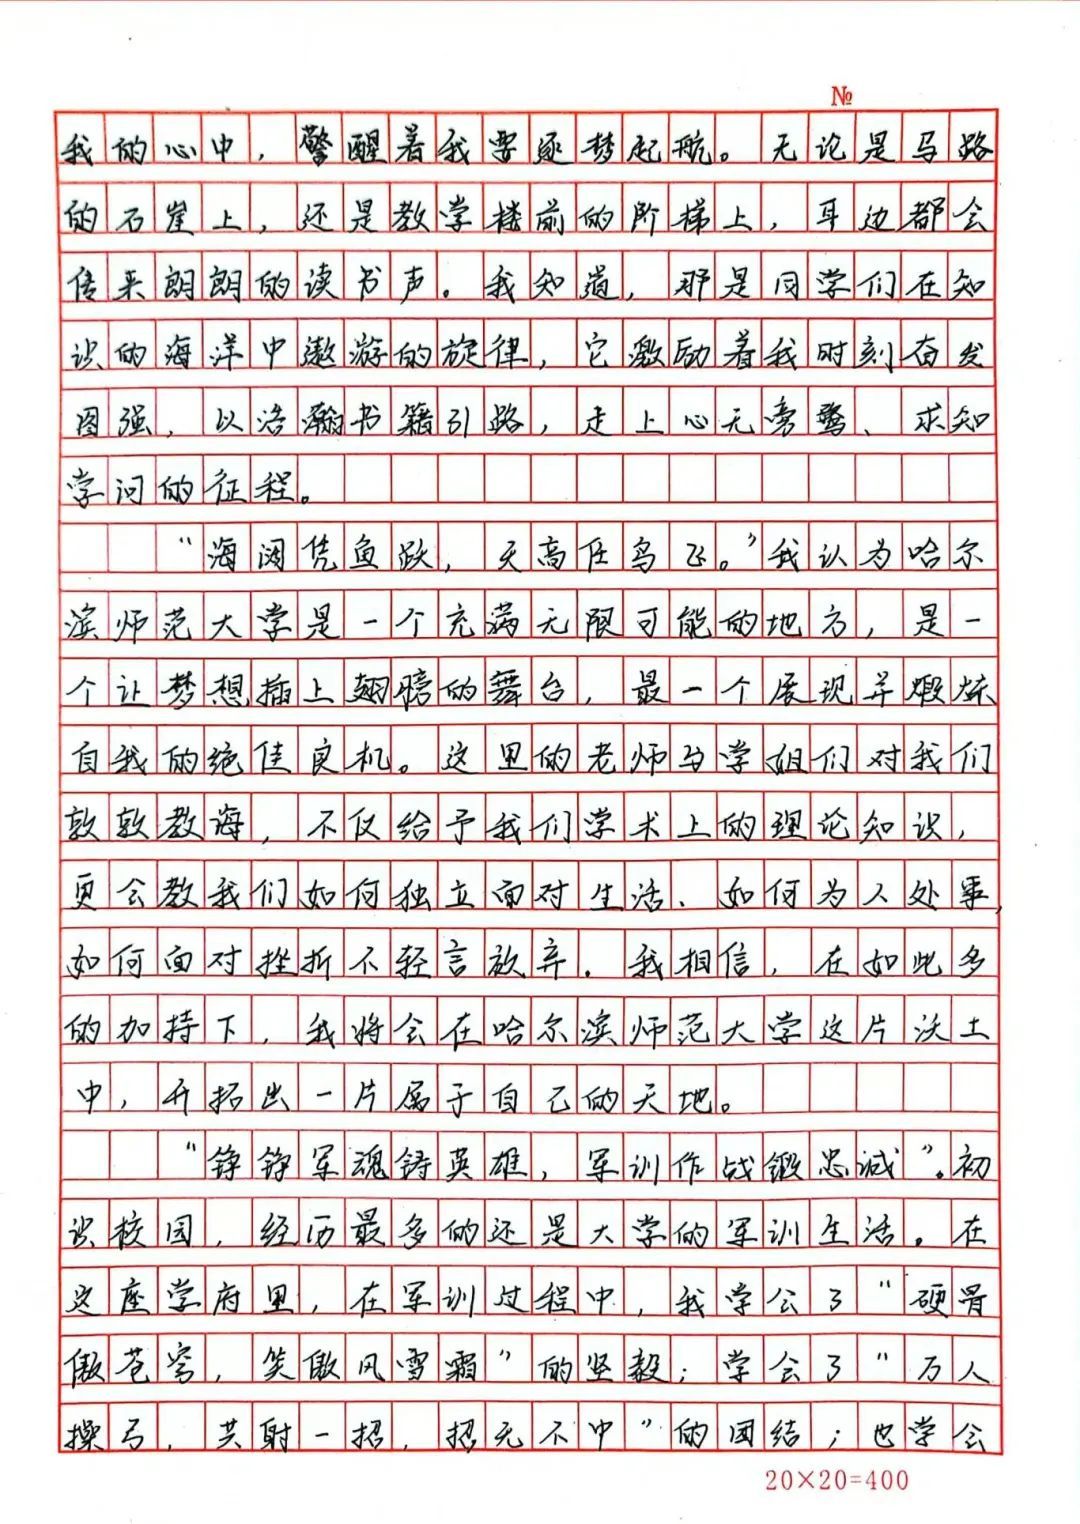 №
我的心中，警醒着我要逐梦起航。无论是马路
的石崖上，还是教学楼前的阶梯上，耳边都会
传来朗朗的读书声。我知道，那是同学们在知
识的海洋中遨游的旋律，它激励着我时刻奋发
图强，以浩瀚书籍引路，走上心无旁鹜、求知
学问的征程。
“海阔凭鱼跃，天高任鸟飞。”我认为哈尔
滨师范大学是一个充满无限可能的地方，是一
个让梦想插上翅膀的舞台，最一个展现并煅炼
自我的绝佳良机。这里的老师与学姐们对我们
敦敦教海，不仅给予我们学术上的理论知识，
更会教我们如何独立面对生活、如何为人处事，
如何面对挫折不轻言放弃．我相信，在如此多
的加持下，我将会在哈尔滨师范大学这片沃土
中，开拓出一片属于自己的天地。
“铮铮军魂铸英雄，军训作战锻忠诚”。初
识校园，经历最多的还是大学的军训生活。在
这座学府里，在军训过程中，我学会了“硬骨
傲苍穹，笑傲风雪霜”的坚毅；学会了“万人
操弓，共射一招，招无不中”的团结；也学会
20×20=400